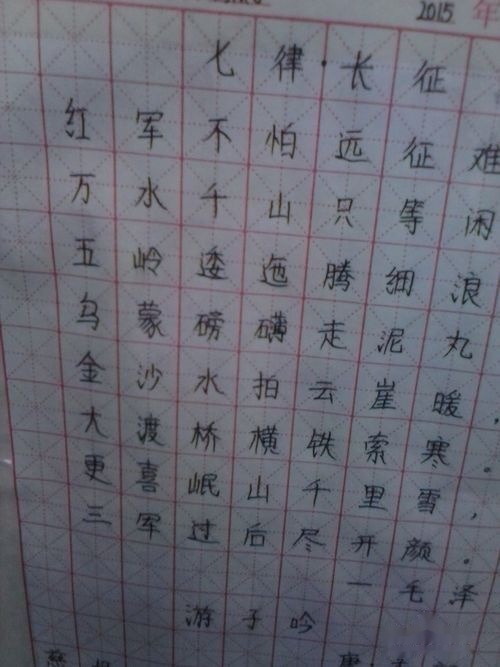 2015 年
七律·长征
红军不怕远征难
万水千山只等闲
五岭逶迤腾细浪
乌蒙磅礴走泥丸
金沙水拍云崖暖,
大渡桥横铁索寒。
更喜岷山千里雪,
三军过后尽开颜。
一毛泽
游子吟